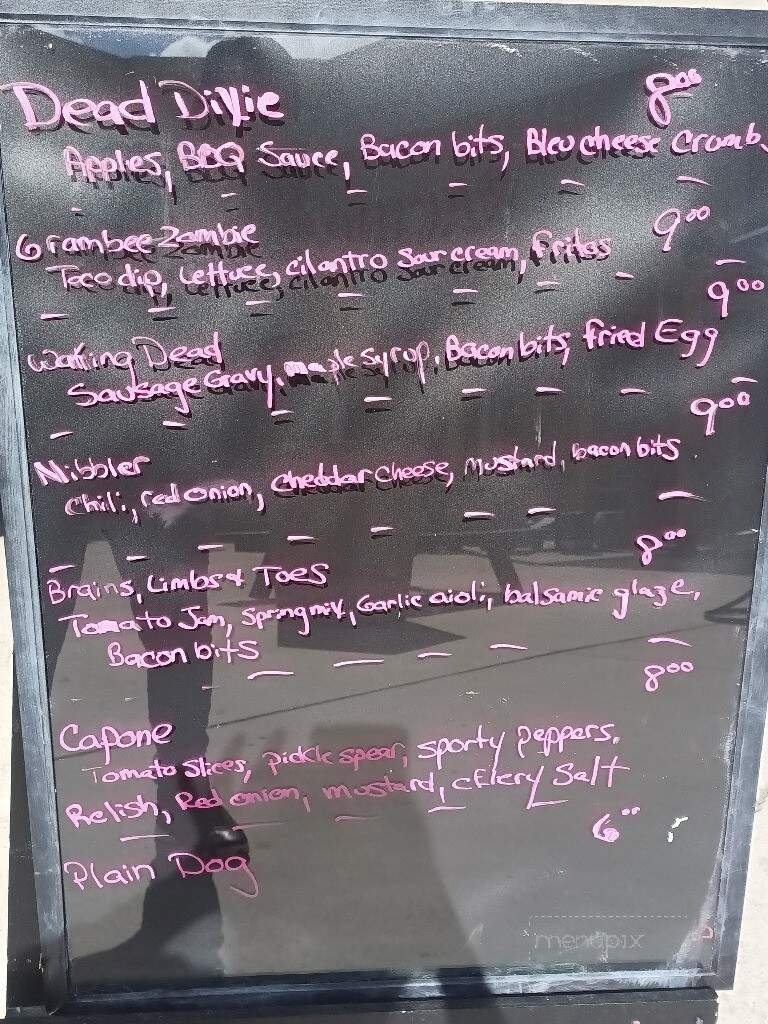 Dead Dixie 8⁰⁰
Apples, BBQ Sauce, Bacon bits, Bleu cheese Cromb
Grambee Zombie 9⁰⁰
Taco dip, Lettuce, cilantro Sour cream, Fritos
9⁰⁰
Walking Dead
Sausage Gravy, maple syrop, Bacon bits, fried Egg
9⁰⁰
Nibbler
Chili, red onion, Cheddar Cheese, mustard, bacon bits
8⁰⁰
Brains, Limbs & Toes
Tomato Jam, Spring mix, Garlic aioli, balsamic glaze,
Bacon bits
8⁰⁰
Capone
Tomato Slices, pickle spear, sporty peppers,
Relish, Red onion, mustard, cElery Salt
6⁰⁰
Plain Dog
menupix